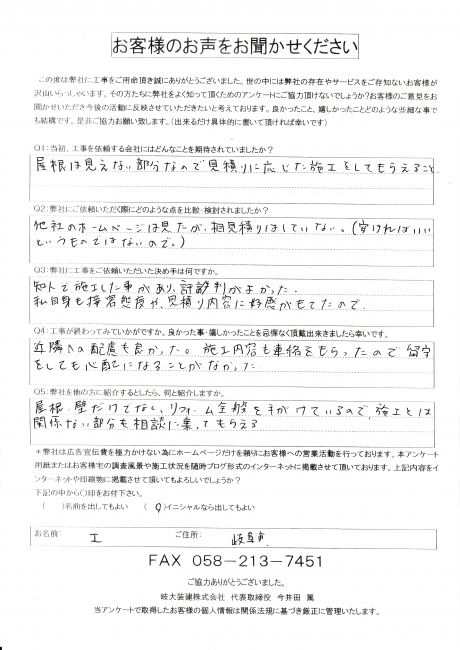 お客様のお声をお聞かせください
この度は弊社に工事をご用命頂き誠にありがとうございます。世の中には弊社の存在やサービスをご存知ないお客様が
沢山いらっしゃいます。その方たちに弊社をよく知って頂くためのアンケートにご協力頂けないでしょうか?お客様のご意見をお
聞かせいただき今後の活動に反映させていただきたいと考えております。良かったこと、嬉しかったことどのような些細な事で
も結構です。是非ご協力お願い致します。(出来るだけ具体的に書いて頂ければ幸いです)
Q1:当初、工事を依頼する会社にはどんなことを期待されていましたか?
屋根は見えない部分なので見積りに応じた施工をしてもらえること
Q2:弊社にご依頼いただく際にどのような点を比較・検討されましたか?
他社のホームページは見たが、相見積りはしていない。(安ければいい
というものではないので。)
Q3:弊社に工事をご依頼いただいた決め手は何ですか。
知人で施工した事があり、評判がよかった。
私自身も接客態度や、見積り内容に好感がもてたので
Q4:工事が終わってみていかがですか。良かった事・嬉しかったことを忌憚なく頂戴出来ましたら幸いです。
近隣への配慮も良かった。施工内容も連絡をもらったので留守
をしても心配になることがなかった
Q5:弊社を他の方に紹介するとしたら、何と紹介しますか。
屋根・壁だけでなく、リフォーム全般を手がけているので、施工とは
関係ない部分も相談に乗ってもらえる
*弊社は広告宣伝費を極力かけない為にホームページだけを頼りにお客様への営業活動を行っております。本アンケート
用紙またはお客様宅の調査風景や施工状況を随時ブログ形式のインターネットに掲載させて頂いております。上記内容をイ
ンターネットや印刷物に掲載させて頂いてもよろしいでしょうか?
下記の中から○印をお付下さい。
( )名前を出してもよい (○)イニシャルなら出してもよい
お名前: I ご住所: 岐阜市
FAX 058-213-7451
ご協力ありがとうございました。
岐大装建株式会社 代表取締役 今井田 篤
当アンケートで取得したお客様の個人情報は関係法規に基づき厳正に管理いたします。